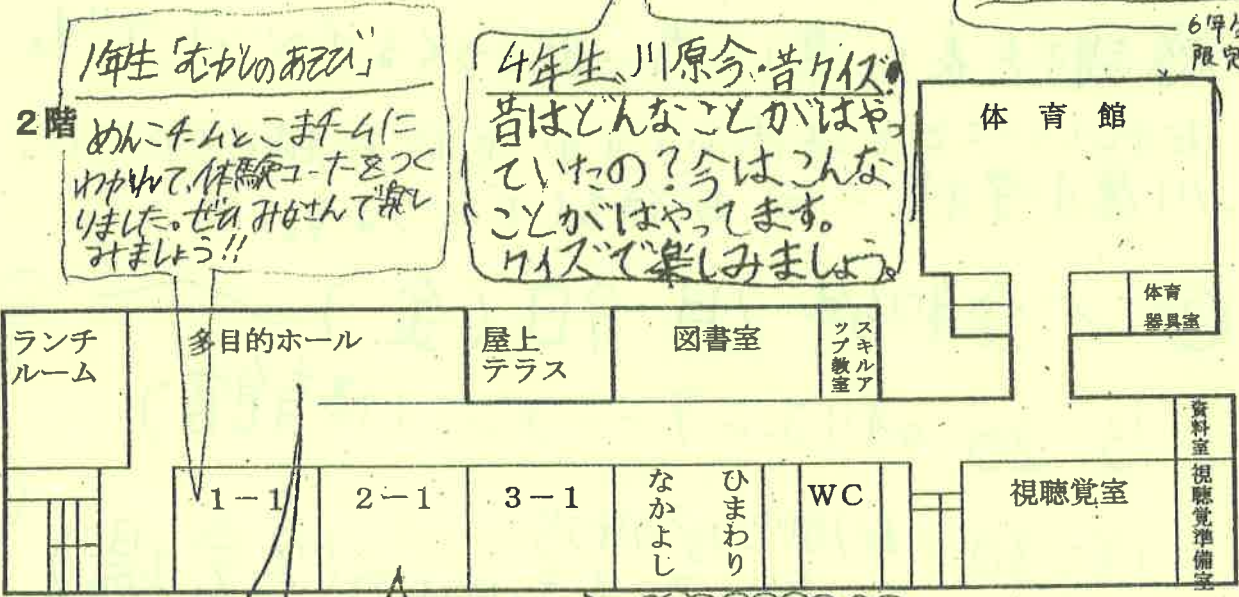 1年生「むかしのあそび」
めんこチームとこまチームに
わかれて、体験コーナーをつく
りました。ぜひみなさんで楽し
みましょう!!
4年生、川原今・昔クイズ
昔はどんなことがはやっ
ていたの?今はこんな
ことがはやってます。
クイズで楽しみましょう。
6年生
限定
2階
体育館
体育
器具室
ランチ
ルーム
多目的ホール
屋上
テラス
図書室
スキルア
ップ教室
資料室
1-1
2-1
3-1
なかよし
ひまわり
WC
視聴覚室
視聴覚準備室